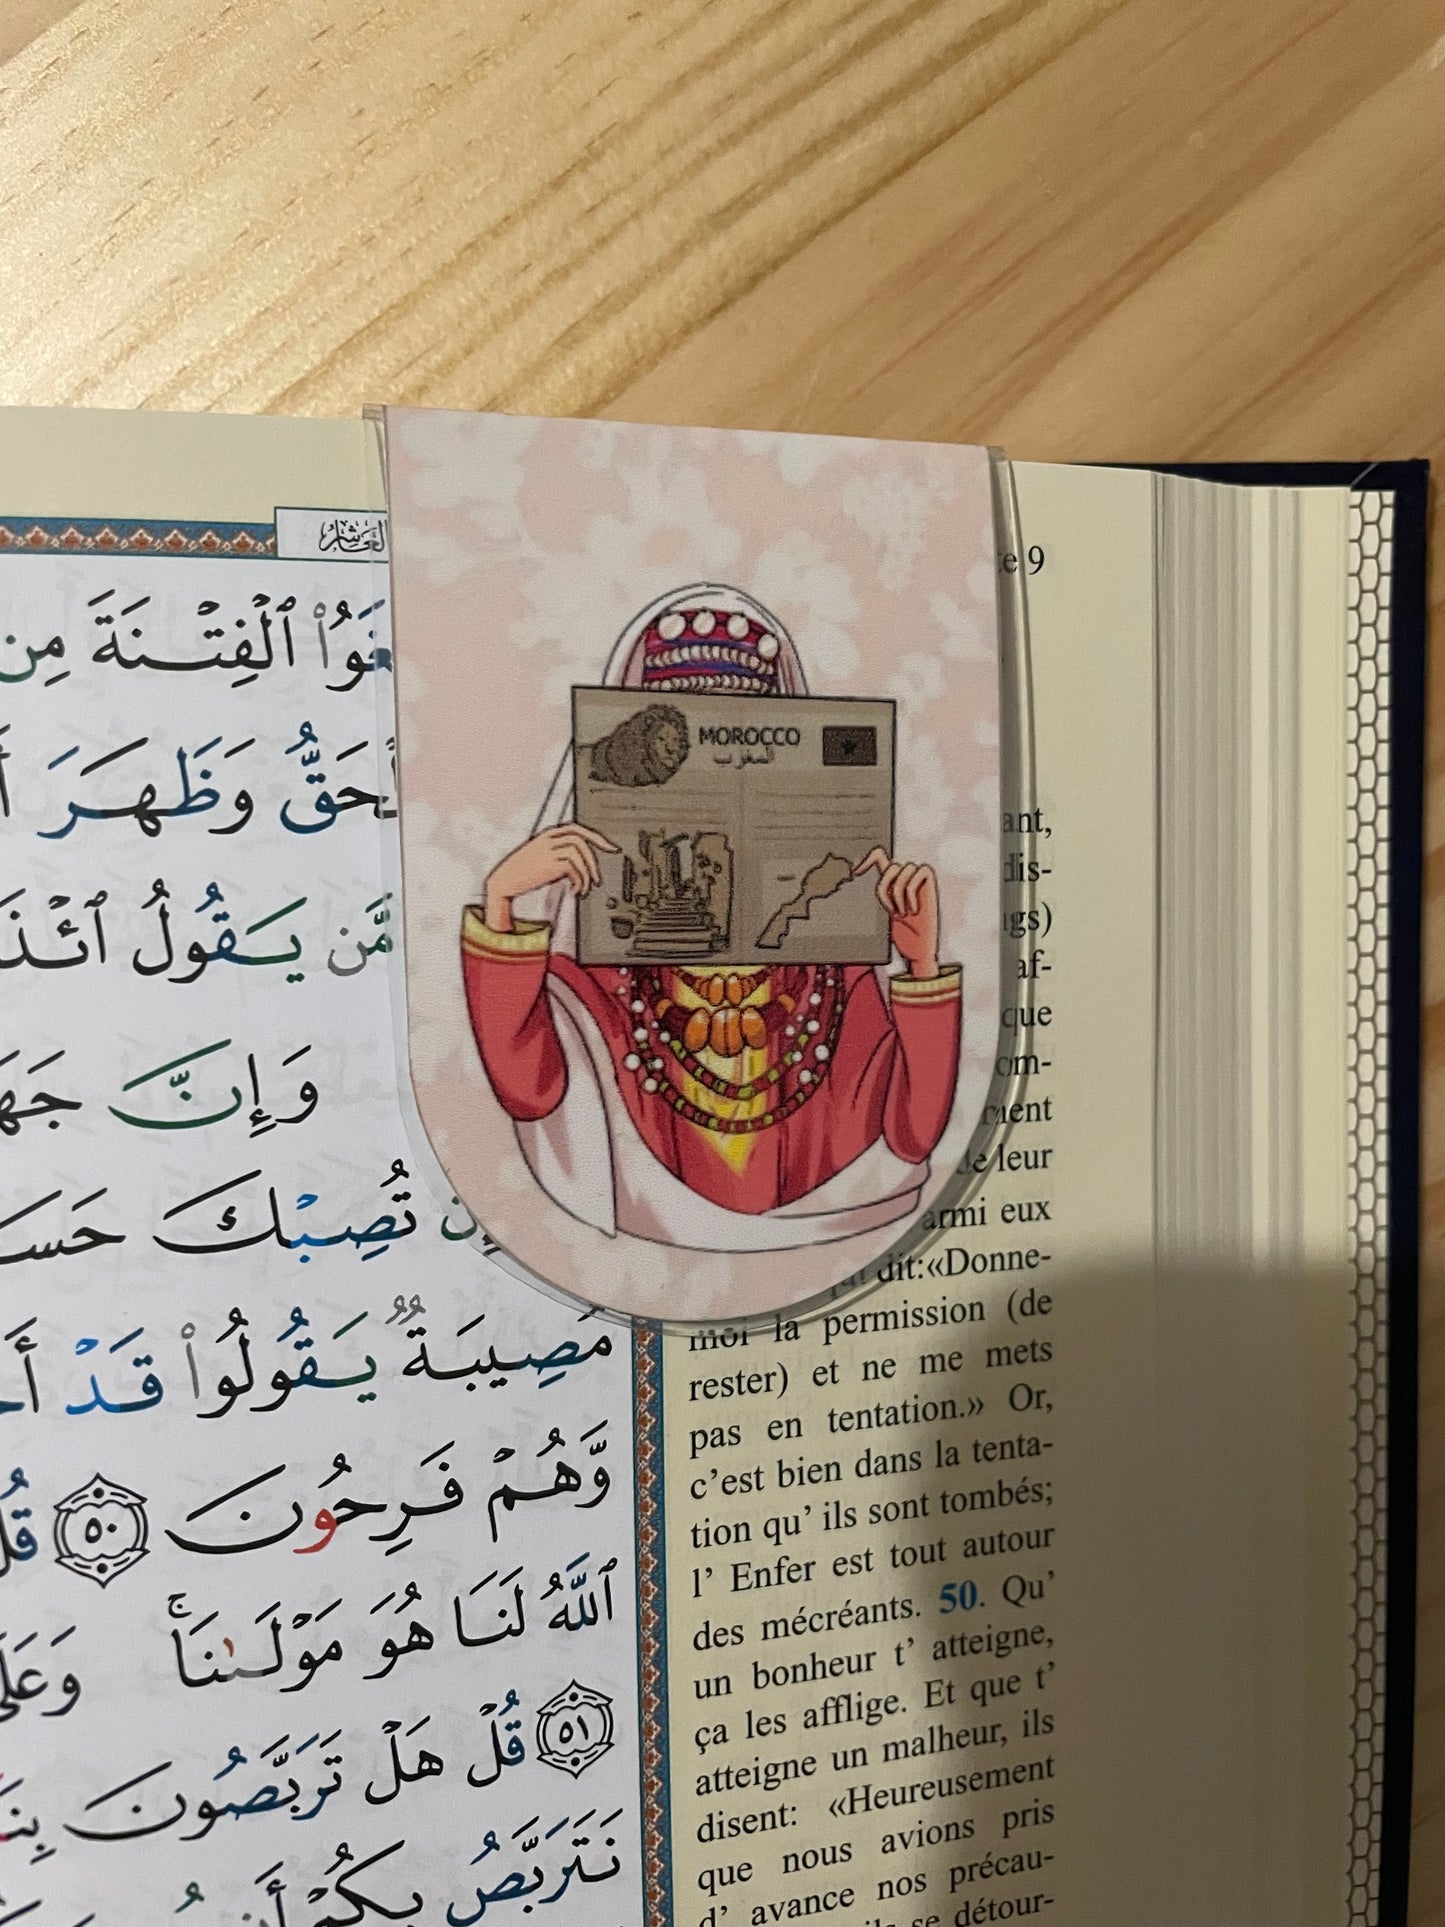 العاشر
ٱلۡفِتۡنَةَ مِن
ٱلۡحَقُّ وَظَهَرَ
مَّن يَقُولُ ٱئۡذَن
وَإِنَّ جَهَنَّمَ
إِن تُصِبۡكَ حَسَنَةٞ
مُصِيبَةٞ يَقُولُواْ قَدۡ
وَّهُمۡ فَرِحُونَ ٥٠ قُل
ٱللَّهُ لَنَا هُوَ مَوۡلَىٰنَاۚ وَعَلَى
٥١ قُلۡ هَلۡ تَرَبَّصُونَ بِنَآ
نَتَرَبَّصُ بِكُمۡ أَن
MOROCCO
المغرب
9
ant,
dis-
ngs)
af-
que
om-
ment
de leur
armi eux
qui dit:«Donne-
moi la permission (de
rester) et ne me mets
pas en tentation.» Or,
c’est bien dans la tenta-
tion qu’ ils sont tombés;
l’ Enfer est tout autour
des mécréants. 50. Qu’
un bonheur t’ atteigne,
ça les afflige. Et que t’
atteigne un malheur, ils
disent: «Heureusement
que nous avions pris
d’ avance nos précau-
ils se détour-